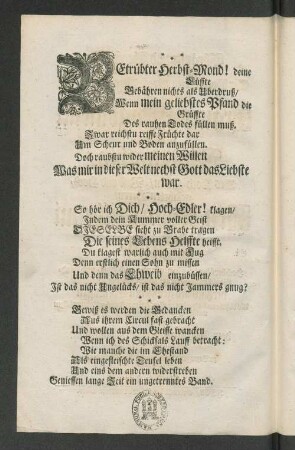 BEtrübter Herbst-Mond! deine
Lüffte
Gebähren nichts als Uberdruß/
Wenn mein geliebstes Pfand die
Grüffte
Des rauhen Todes füllen muß.
Zwar reichstu reiffe Früchte dar
Um Scheur und Boden anzufüllen.
Doch raubstu wider meinen Willen
Was mir in dieser Welt nechst Gott das Liebste
war.
So hör ich Dich/ Hoch-Edler! klagen/
Indem dein Kummer voller Geist
DIESELBE sieht zu Grabe tragen
Die seines Lebens Helffte heist.
Du klagest warlich auch mit Fug
Denn erstlich einen Sohn zu missen
Und denn das Ehweib einzubüssen/
Ist das nicht Ungelücks/ ist das nicht Jammers gnug?
Gewiß es werden die Gedancken
Aus ihrem Circul fast gebracht
Und wollen aus dem Gleisse wancken
Wenn ich des Schicksals Lauff betracht:
Wie manche die im Ehestand
Als eingefleischte Teufel leben
Und eins dem andern widerstreben
Geniessen lange Zeit ein ungetrenntes Band.